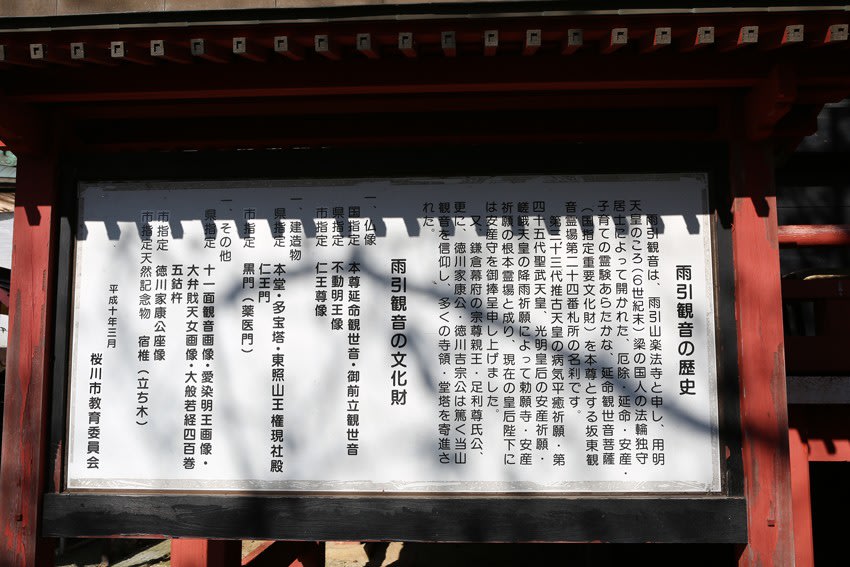 雨引観音の歴史
雨引観音は、雨引山楽法寺と申し、用明
天皇のころ(6世紀末)梁の国人の法輪独守
居士によって開かれた、厄除・延命・安産・
子育ての霊験あらたかな、延命観世音菩薩
(国指定重要文化財)を本尊とする坂東観
音霊場第二十四番札所の名刹です。
第三十三代推古天皇の病気平癒祈願・第
四十五代聖武天皇、光明皇后の安産祈願・
嵯峨天皇の降雨祈願によって勅願寺・安産
祈願の根本霊場と成り、現在の皇后陛下に
は安産守を御捧呈申し上げました。
又、鎌倉幕府の宗尊親王・足利尊氏公、
更に、徳川家康公・徳川吉宗公は篤く当山
観音を信仰し、多くの寺領・堂塔を寄進さ
れた。
雨引観音の文化財
一、仏像
国指定 本尊延命観世音・御前立観世音
県指定 不動明王像
市指定 仁王尊像
一、建造物
県指定 本堂・多宝塔・東照山王権現社殿
仁王門
市指定 黒門(薬医門)
一、その他
県指定 十一面観音画像・愛染明王画像・
大弁戝天女画像・大般若経四百巻
五鈷杵
市指定 徳川家康公座像
市指定天然記念物 宿椎(立ち木)
平成十年三月
桜川市教育委員会